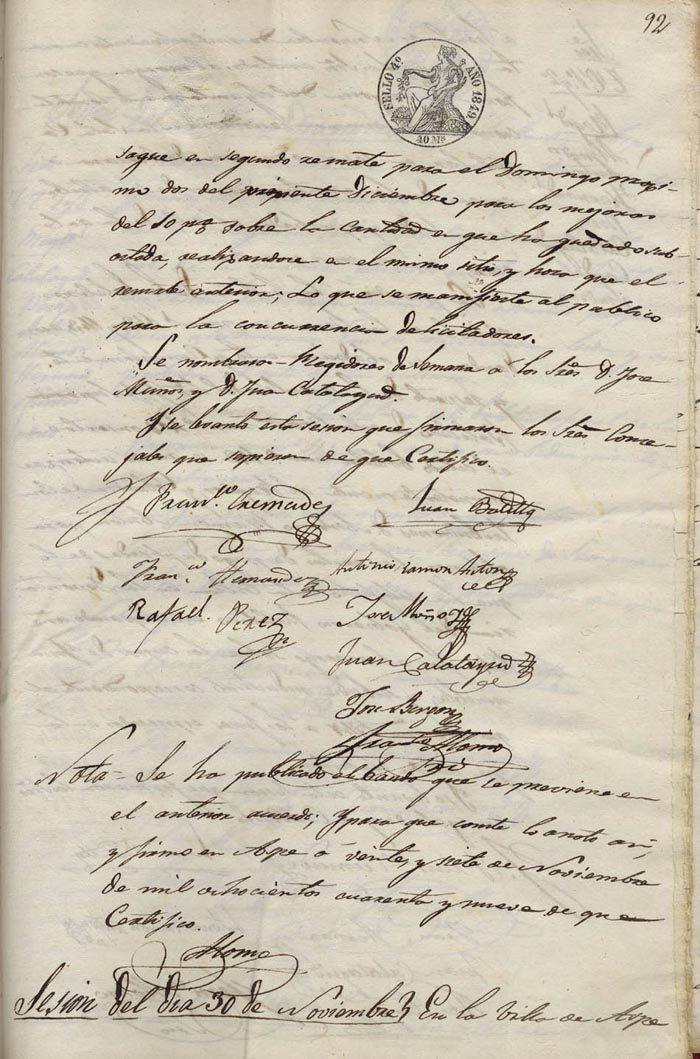 92
SELLO 4º AÑO 1849.
40 Ms
saque en segundo remate para el Domingo proxi-
mo dos del Diciembre para los mejoras
del 10 pg sobre la cantidad en que ha quedado sub-
astada, realizandose en el mismo sitio, y hora que el
remate anterior; Lo que se manifieste al publico
para la concurrencia de licitadores.
Se nombraron Regidores de Semana a los Sres D. Jose
Muñoz, y D. Juan Calatayud.
Y se levantó esta sesion que firmaron los Sres Conce-
jales que supieron de que Certifico.
Franco Cremades Juan
Franco Hernandez Antonio Ramon Anton
Rafael Perez Jose Muñoz
Juan Calatayud
Jose
Alomo
Nota = Se ha publicado el bando que se previene en
el anterior acuerdo; Y para que conste lo anoto asi,
y firmo en Aspe á veinte y siete de Noviembre
de mil ochocientos cuarenta y nueve de que
Certifico.
Alomo
Sesion del dia 30 de Noviembre } En la Villa de Aspe